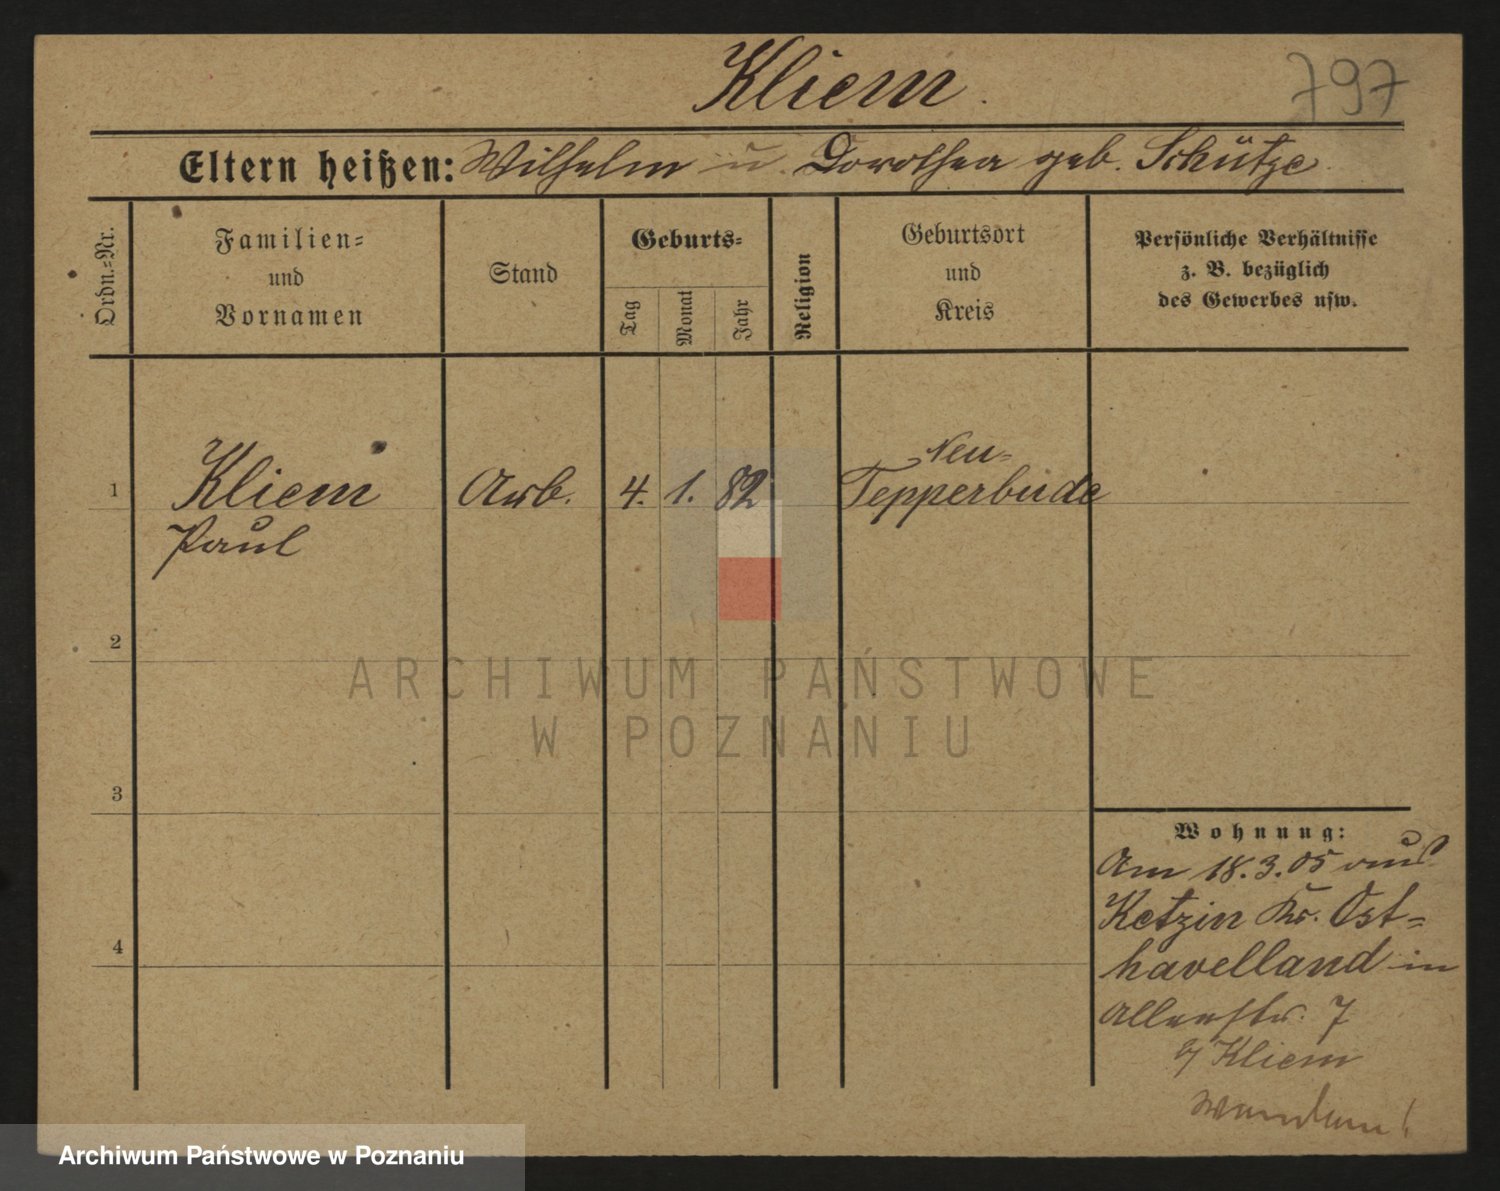 Kliem.
797
Eltern heißen: Wilhelm u. Dorothea geb. Schütze.
Ordn.=Nr.
Familien=
und
Vornamen
Stand
Geburts=
Tag
Monat
Jahr
Religion
Geburtsort
und
Kreis
Persönliche Verhältnisse
z. B. bezüglich
des Gewerbes usw.
1
Kliem
Paul
Arb.
4. 1. 82
Neu=
Tepperbude
2
ARCHIWUM PAŃSTWOWE
W POZNANIU
3
4
Wohnung:
Am 18.3.05 aus
Ketzin Kr. Ost=
havelland in
Allerstr. 7
b/ Kliem
Archiwum Państwowe w Poznaniu